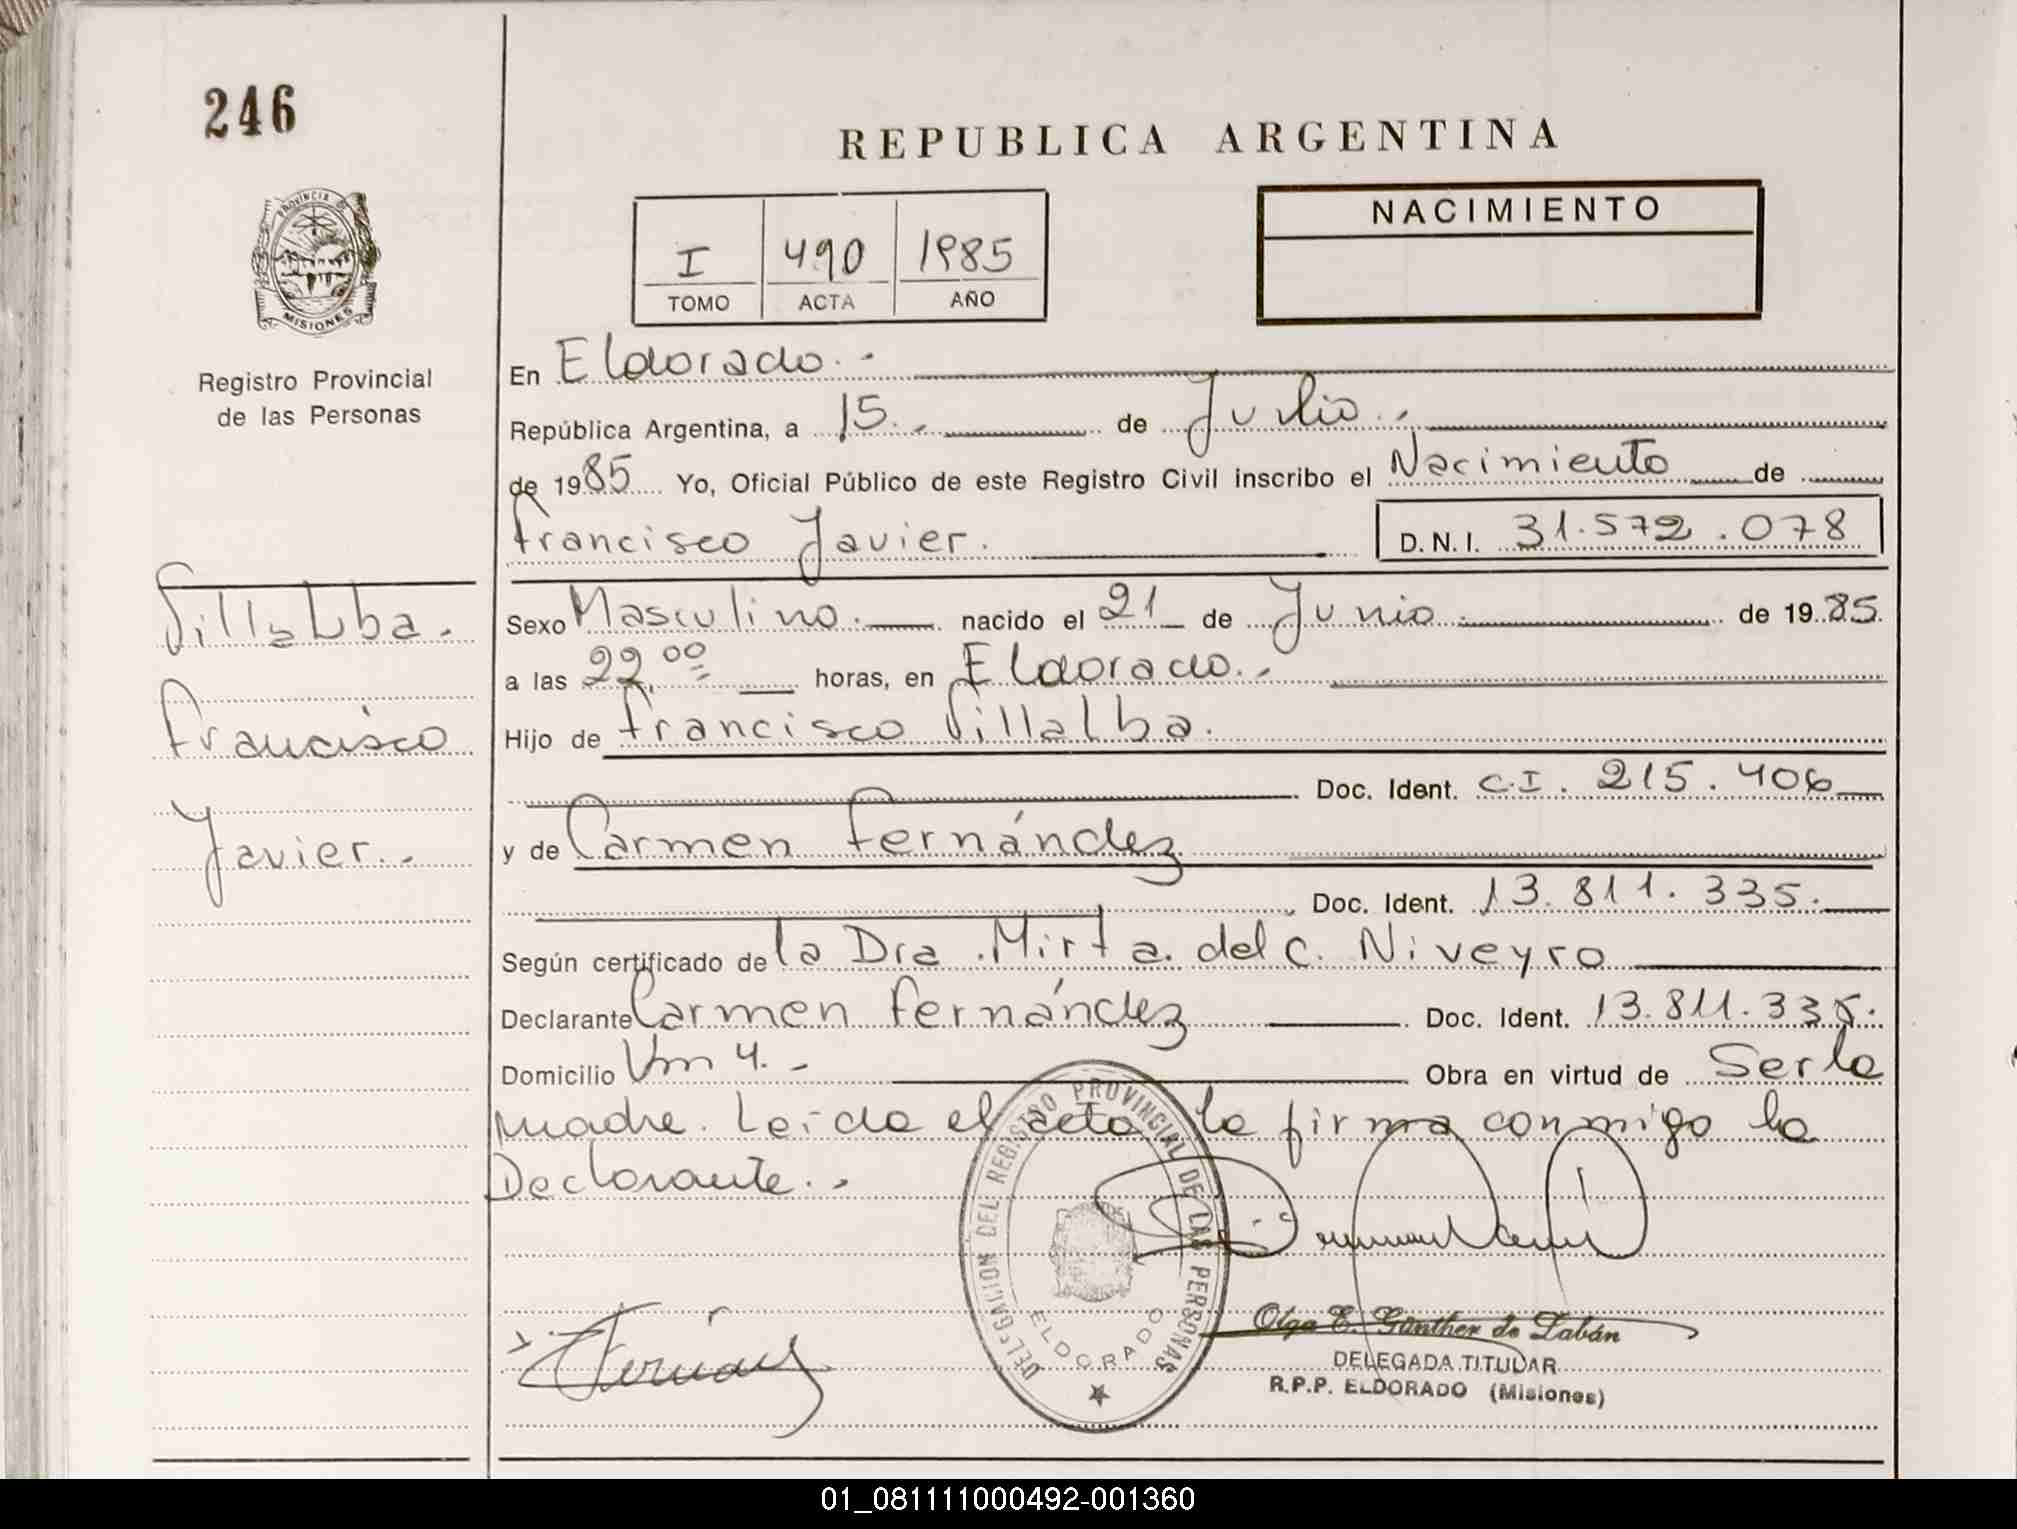 246
REPUBLICA ARGENTINA
PROVINCIA DE
MISIONES
Registro Provincial
de las Personas
I 490 1985
TOMO ACTA AÑO
NACIMIENTO
En Eldorado.-
República Argentina, a 15.- de Julio.-
de 1985 Yo, Oficial Público de este Registro Civil inscribo el Nacimiento de
Francisco Javier. D.N.I. 31.572.078
Villalba.
Francisco
Javier.-
Sexo Masculino. nacido el 21 de Junio de 1985.
a las 22,00 horas, en Eldorado.-
Hijo de Francisco Villalba.
Doc. Ident. C.I. 215.406
y de Carmen Fernández
Doc. Ident. 13.811.335.
Según certificado de la Dra. Mirta del C. Niveyro
Declarante Carmen Fernández Doc. Ident. 13.811.335.
Domicilio Km 4.- Obra en virtud de Ser la
madre. Leída el acta la firma conmigo la
Declarante.-
DELEGACION DEL REGISTRO PROVINCIAL DE LAS PERSONAS
ELDORADO
Olga E. Günther de Labán
DELEGADA TITULAR
R.P.P. ELDORADO (Misiones)
01_081111000492-001360